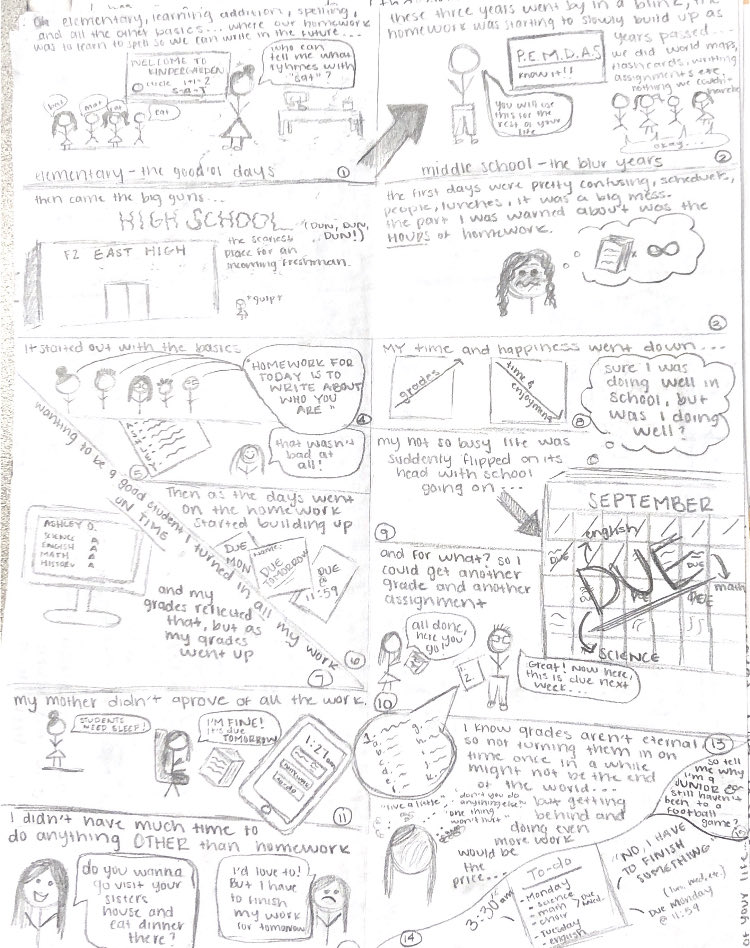 elementary, learning addition, spelling,
and all the other basics... where our homework
was to learn to spell so we can write in the future...
WELCOME TO
KINDERGARDEN
circle 1+1=2
who can
tell me what
ryhmes with
"sat"?
hat
mat
rat
cat
elementary - the good ol days
1
these three years went by in a blink, the
homework was starting to slowly build up as
years passed...
we did world maps,
flashcards, writing
assignments etc.
nothing we couldn't
handle
P.E.M.D.A.S
know it!!
You will use
this for the
rest of your
life
okay...
2
middle school - the blur years
then came the big guns...
HIGH SCHOOL
(DUN, DUN,
DUN!)
the scariest
place for an
incoming freshman.
EAST HIGH
*gulp*
the first days were pretty confusing, schedules,
people, lunches, it was a big mess.
the part I was warned about was the
HOURS of homework.
∞
3
It started out with the basics
"HOMEWORK FOR
TODAY IS TO
WRITE ABOUT
WHO YOU
ARE"
4
5
that wasn't
bad at
all!
wanting to be a good student I turned in all my work
ON TIME
6
Then as the days went
on the homework
started building up
DUE
MON
Name:
DUE
TOMORROW
DUE
@
11:59
ASHLEY O.
SCIENCE A
ENGLISH A
MATH A
HISTORY A
and my
grades reflected
that, but as
my grades
went up
7
MY time and happiness went down...
grades
time &
enjoyment
8
sure I was
doing well in
school, but
was I doing
well?
my not so busy life was
suddenly flipped on its
head with school
going on...
9
SEPTEMBER
english
DUE
DUE
DUE
DUE
math
SCIENCE
and for what? so I
could get another
grade and another
assignment
all done,
here you
go!
10
Great! Now here,
this is due next
week...
my mother didn't aprove of all the work.
STUDENTS
NEED SLEEP!
I'M FINE!
It's due
TOMORROW
1:27am
11
I didn't have much time to
do anything OTHER than homework
do you wanna
go visit your
sisters
house and
eat dinner
there?
I'd love to!
But I have
to finish
my work
for tomorrow
13
I know grades aren't eternal
so not turning them in on
time once in a while
might not be the end
of the world...
but getting
behind and
doing even
more work
would be
the
price...
"live a little"
"don't you do
anything else"
"one thing
won't hurt"
so tell
me why
I'm a
JUNIOR &
still haven't
been to a
football
game?
3:30am
To-do
- Monday
• science
• math
• choir
- Tuesday
english
DUE
Wed.
"NO, I HAVE
TO FINISH
SOMETHING"
(tues, wed, etc.)
Due Monday
@ 11:59
14